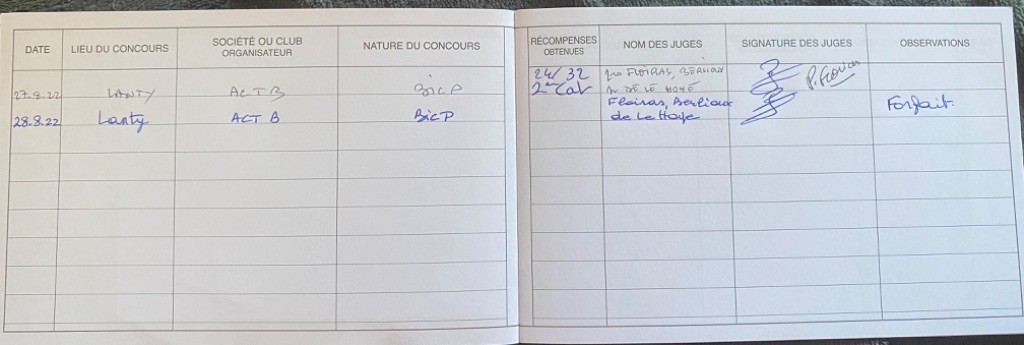 DATE
LIEU DU CONCOURS
SOCIÉTÉ OU CLUB
ORGANISATEUR
NATURE DU CONCOURS
RÉCOMPENSES
OBTENUES
NOM DES JUGES
SIGNATURE DES JUGES
OBSERVATIONS
27.8.22 LANTY ACTB BICP 24/32 FLOIRAS,
2 Cat DE LE
28.8.22 Lanty ACT B BICP Floiras, Berlioux Forfait.
de Le Haye